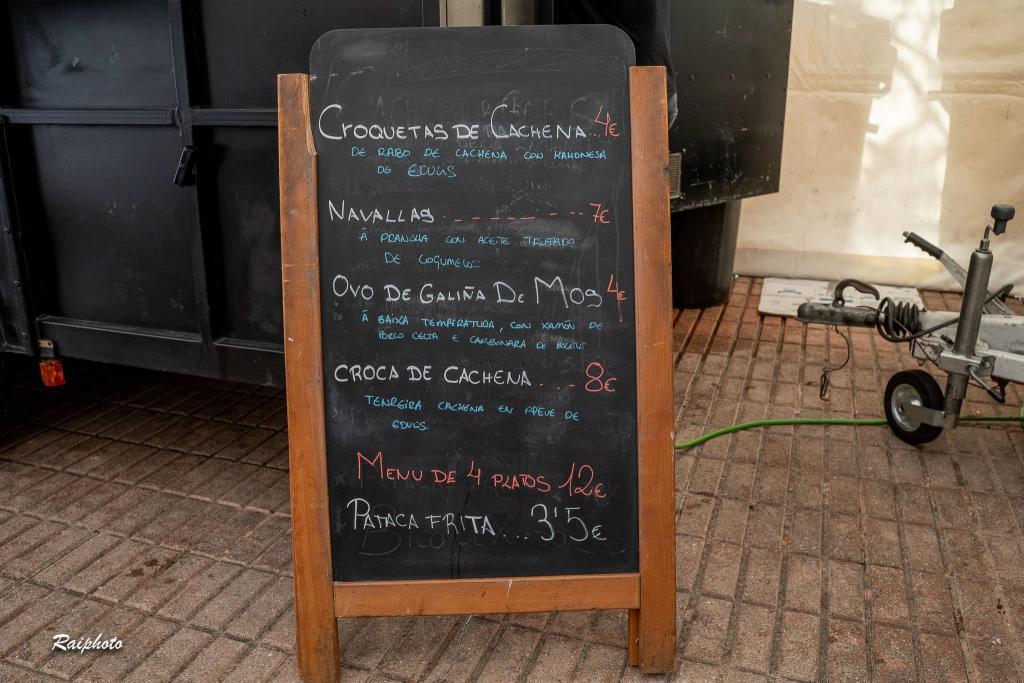 CROQUETAS DE CACHENA...4€
DE RABO DE CACHENA CON MAHONESA
DE EDULIS
NAVALLAS - - - - - - - - - 7€
Á PRANCHA CON ACEITE TRUFADO
DE COGUMELOS
OVO DE GALIÑA DE MOS 4€
Á BAIXA TEMPERATURA, CON XAMÓN DE
PORCO CELTA E CARBONARA DE BOLETUS
CROCA DE CACHENA . . - 8€
TENREIRA CACHENA EN PREVE DE
EDULIS
MENU DE 4 PLATOS 12€
PATACA FRITA ... 3'5€
Raiphoto